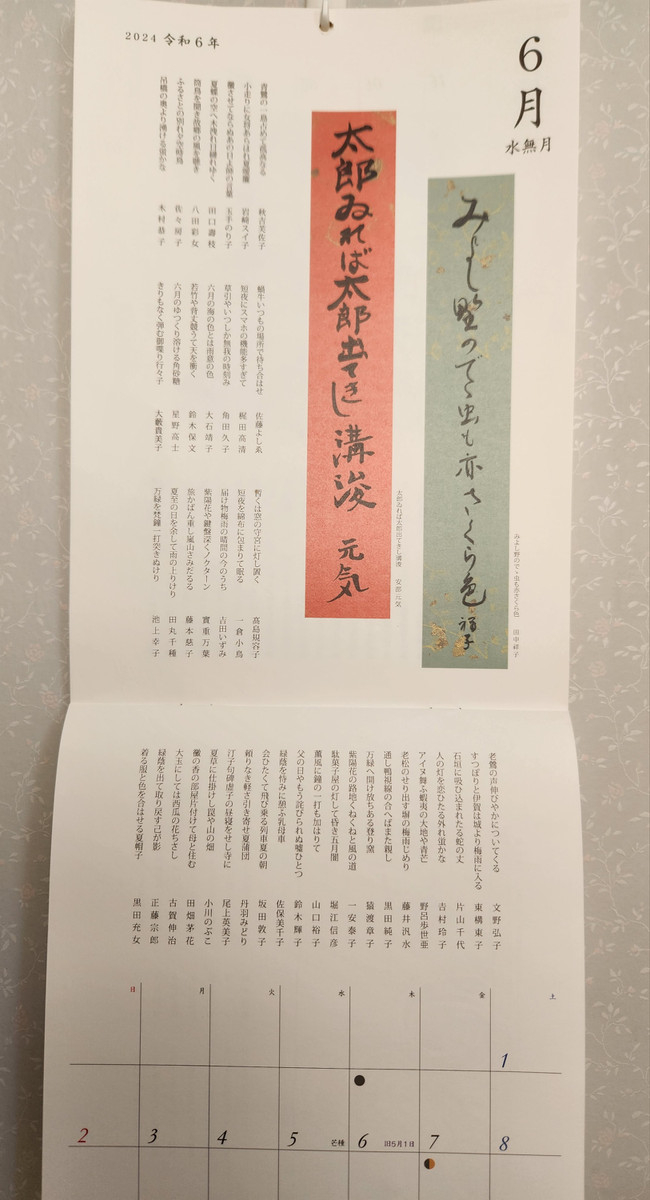 2024 令和6年
6月
水無月
みよし野のでゝ虫も亦さくら色 祥子
みよし野のでゝ虫も亦さくら色 田中祥子
太郎ゐれば太郎出てきし溝浚 元気
太郎ゐれば太郎出てきし溝浚 安部元気
秋吉美佐子
岩﨑スイ子
玉手のり子
田口壽枝
八田彩女
佐々房子
吊橋の奥より湧ける蛍かな 木村恭子
蝸牛いつもの場所で待ち合はせ 佐藤よしゑ
短夜にスマホの機能多すぎて 梶田高清
草引やいつしか無我の時刻み 角田久子
六月の海の色とは雨意の色 大石靖子
若竹や背丈競うて天を衝く 鈴木保文
六月のゆつくり溶ける角砂糖 星野高士
きりもなく弾む御喋り行々子 大藪貴美子
暫くは窓の守宮に灯し置く 髙島規容子
短夜を綿布に包まりて眠る 一倉小鳥
届け物梅雨の晴間の今のうち 吉田いずみ
紫陽花や鍵盤深くノクターン 實重万葉
旅かばん重し嵐山さみだるる 藤本慈子
夏至の日を余して雨の上りけり 田丸千種
万緑を梵鐘一打突きぬけり 池上幸子
老鶯の声伸びやかについてくる 文野弘子
すつぽりと伊賀は城より梅雨に入る 東構東子
石垣に吸ひ込まれたる蛇の丈 片山千代
人の灯を恋ひたる外れ道かな 吉村玲子
アイヌ舞ふ蝦夷の大地や青芒 野呂歩世亜
老松のせり出す塀の梅雨じめり 藤井汎水
通し鴨視線の合へばまた親し 黒田純子
万緑へ開け放ちある登り窯 猿渡章子
紫陽花の路地くねくねと風の道 一安泰子
駄菓子屋の灯して昏き五月闇 堀江信彦
薫風に鐘の一打も加はりて 山口裕子
父の日やもう詫びられぬ嘘ひとつ 鈴木輝子
緑蔭を恃みに憩ふ乳母車 佐保美千子
会ひたくて飛び乗る列車夏の朝 坂田敦子
頼りなき軽さ引き寄せ夏蒲団 丹羽みどり
汀子句碑虚子の昼寝をせし寺に 尾上英美子
夏草に仕掛けし罠や山の畑 小川のぶこ
黴の香の部屋片付けて母と住む 田畑茅花
大玉にしては西瓜の花ちさし 古賀伸治
緑蔭を出て取り戻す己が影 正藤宗郎
着る服と色を合はせる夏帽子 黒田充女
日 月 火 水 木 金 土
1
2 3 4 5 芒種 6 旧5月1日 7 8